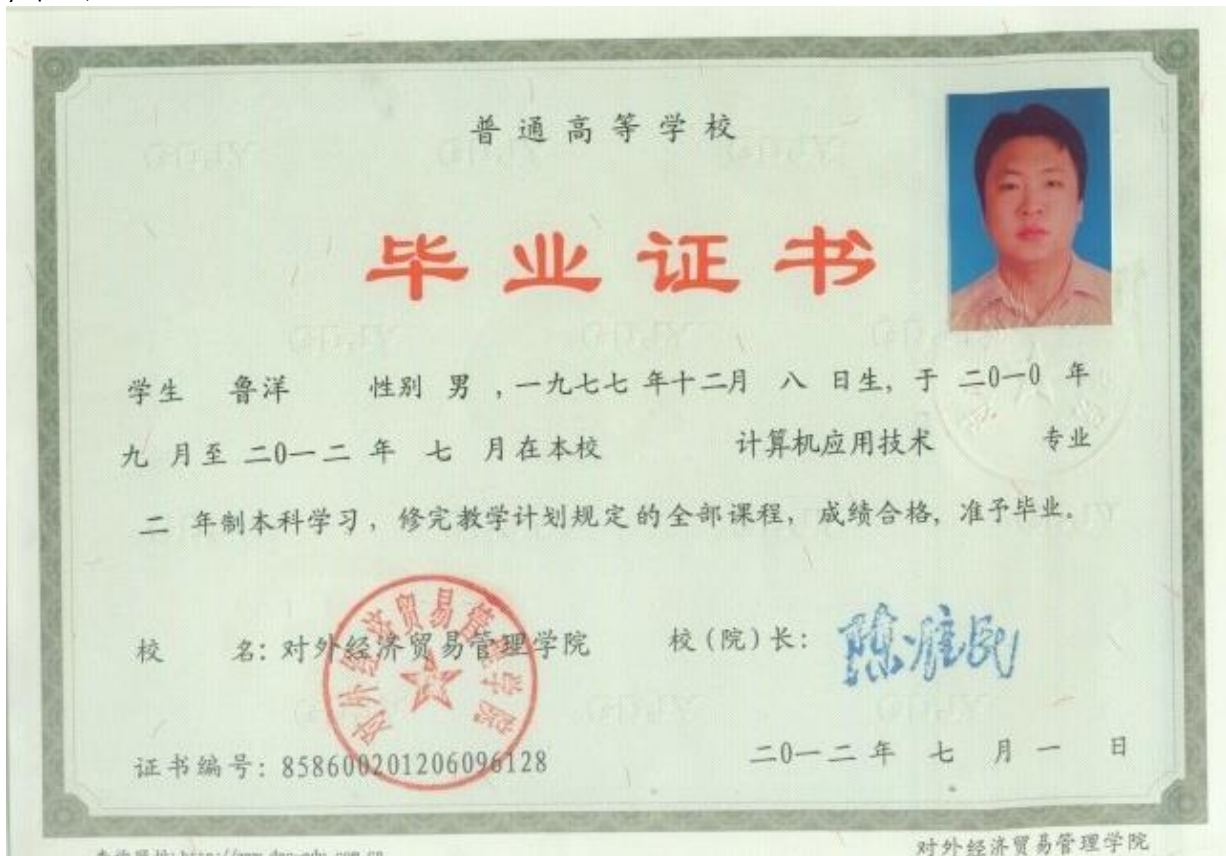 普通高等学校
毕业证书
学生 鲁洋 性别 男 ,一九七七 年十二月 八 日生, 于 二0一0 年
九 月至 二0一二 年 七 月在本校 计算机应用技术 专业
二 年制本科学习, 修完教学计划规定的全部课程, 成绩合格, 准予毕业。
对外经济贸易管理学院
校 名: 对外经济贸易管理学院 校(院)长:
证书编号: 858600201206096128 二0一二 年 七 月 一 日
对外经济贸易管理学院